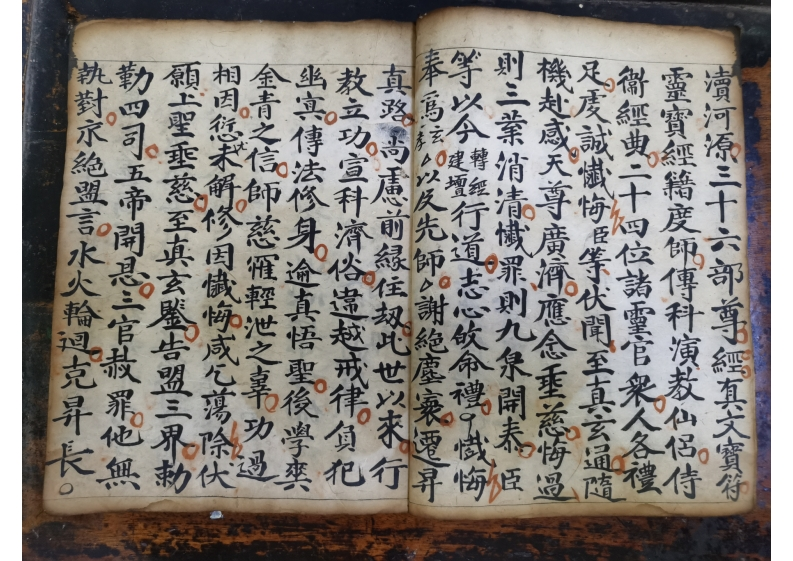 瀆河源三十六部尊經真文寶符
靈寶經籍度師傳科演教仙侶侍
衛經典二十四位諸靈官衆人各禮
足虔誠懺悔臣等伏聞至真玄通隨
機赴感天尊廣濟應念垂慈悔過
則三業消清懺罪則九泉開泰臣
等以今轉經建壇行道志心皈命禮〇懺悔
奉爲玄以及先師謝絕塵寰遷昇
真路尚慮前緣住劫此世以來行
教立功宣科濟俗違越戒律負犯
幽冥傳法修身逾真悟聖後學與
金青之信師慈罹輕泄之辜功過
相因愆未解修因懺悔咸乞蕩除伏
願上聖垂慈至真玄鑒告盟三界勅
勒四司五帝開恩三官赦罪他無
執對永絕盟言水火輪迴克昇長〇